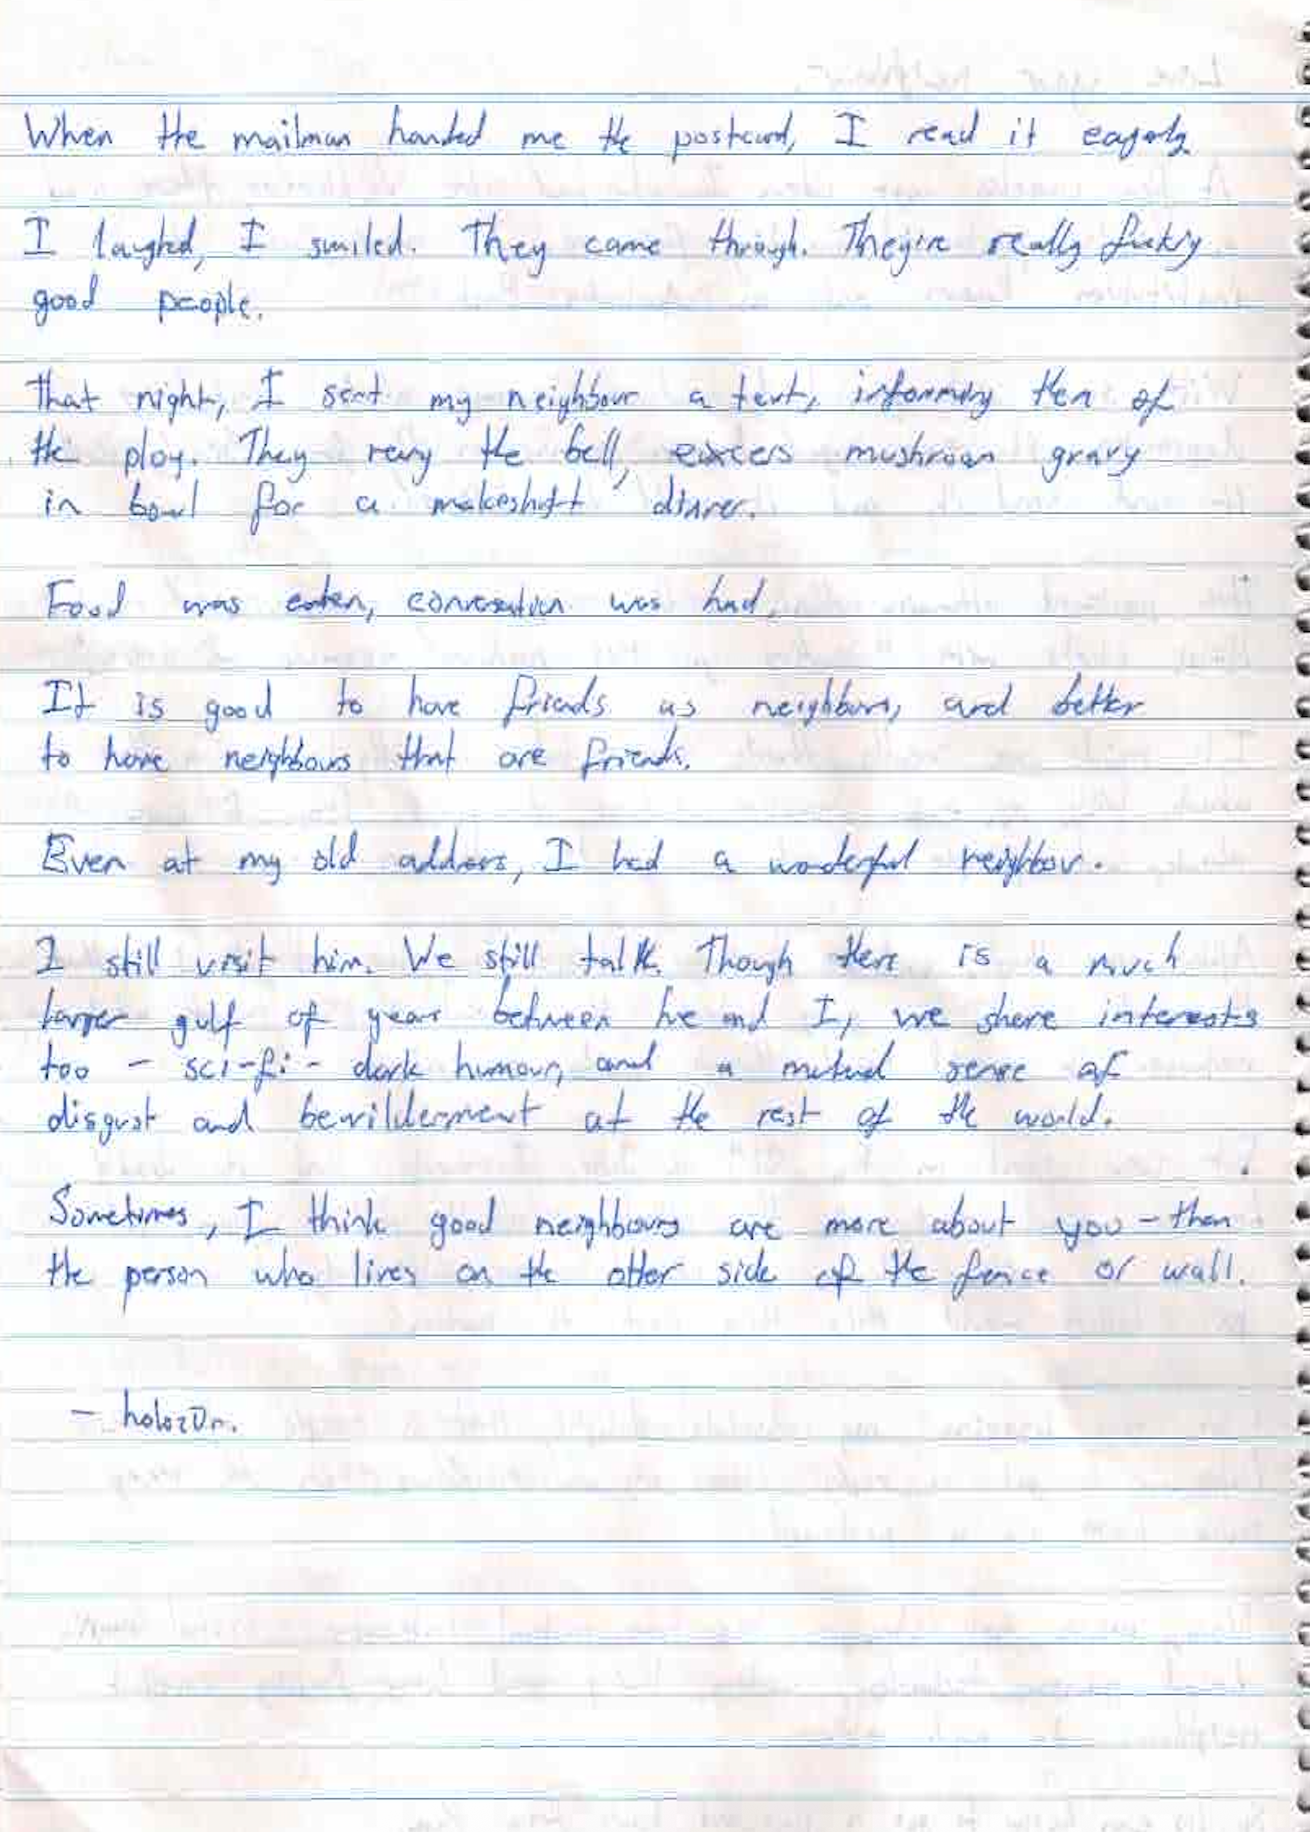 When the mailman handed me the postcard, I read it eagerly.
I laughed, I smiled. They came through. They're really fucking
good people.
That night, I sent my neighbour a text, informing them of
the ploy. They rang the bell, excess mushroom gravy
in bowl for a makeshift dinner.
Food was eaten, conversation was had.
It is good to have friends as neighbours, and better
to have neighbours that are friends.
Even at my old address, I had a wonderful neighbour.
I still visit him. We still talk. Though there is a much
larger gulf of years between he and I, we share interests
too - sci-fi - dark humour, and a mutual sense of
disgust and bewilderment at the rest of the world.
Sometimes, I think good neighbours are more about you - than
the person who lives on the other side of the fence or wall.
- holoz0r.